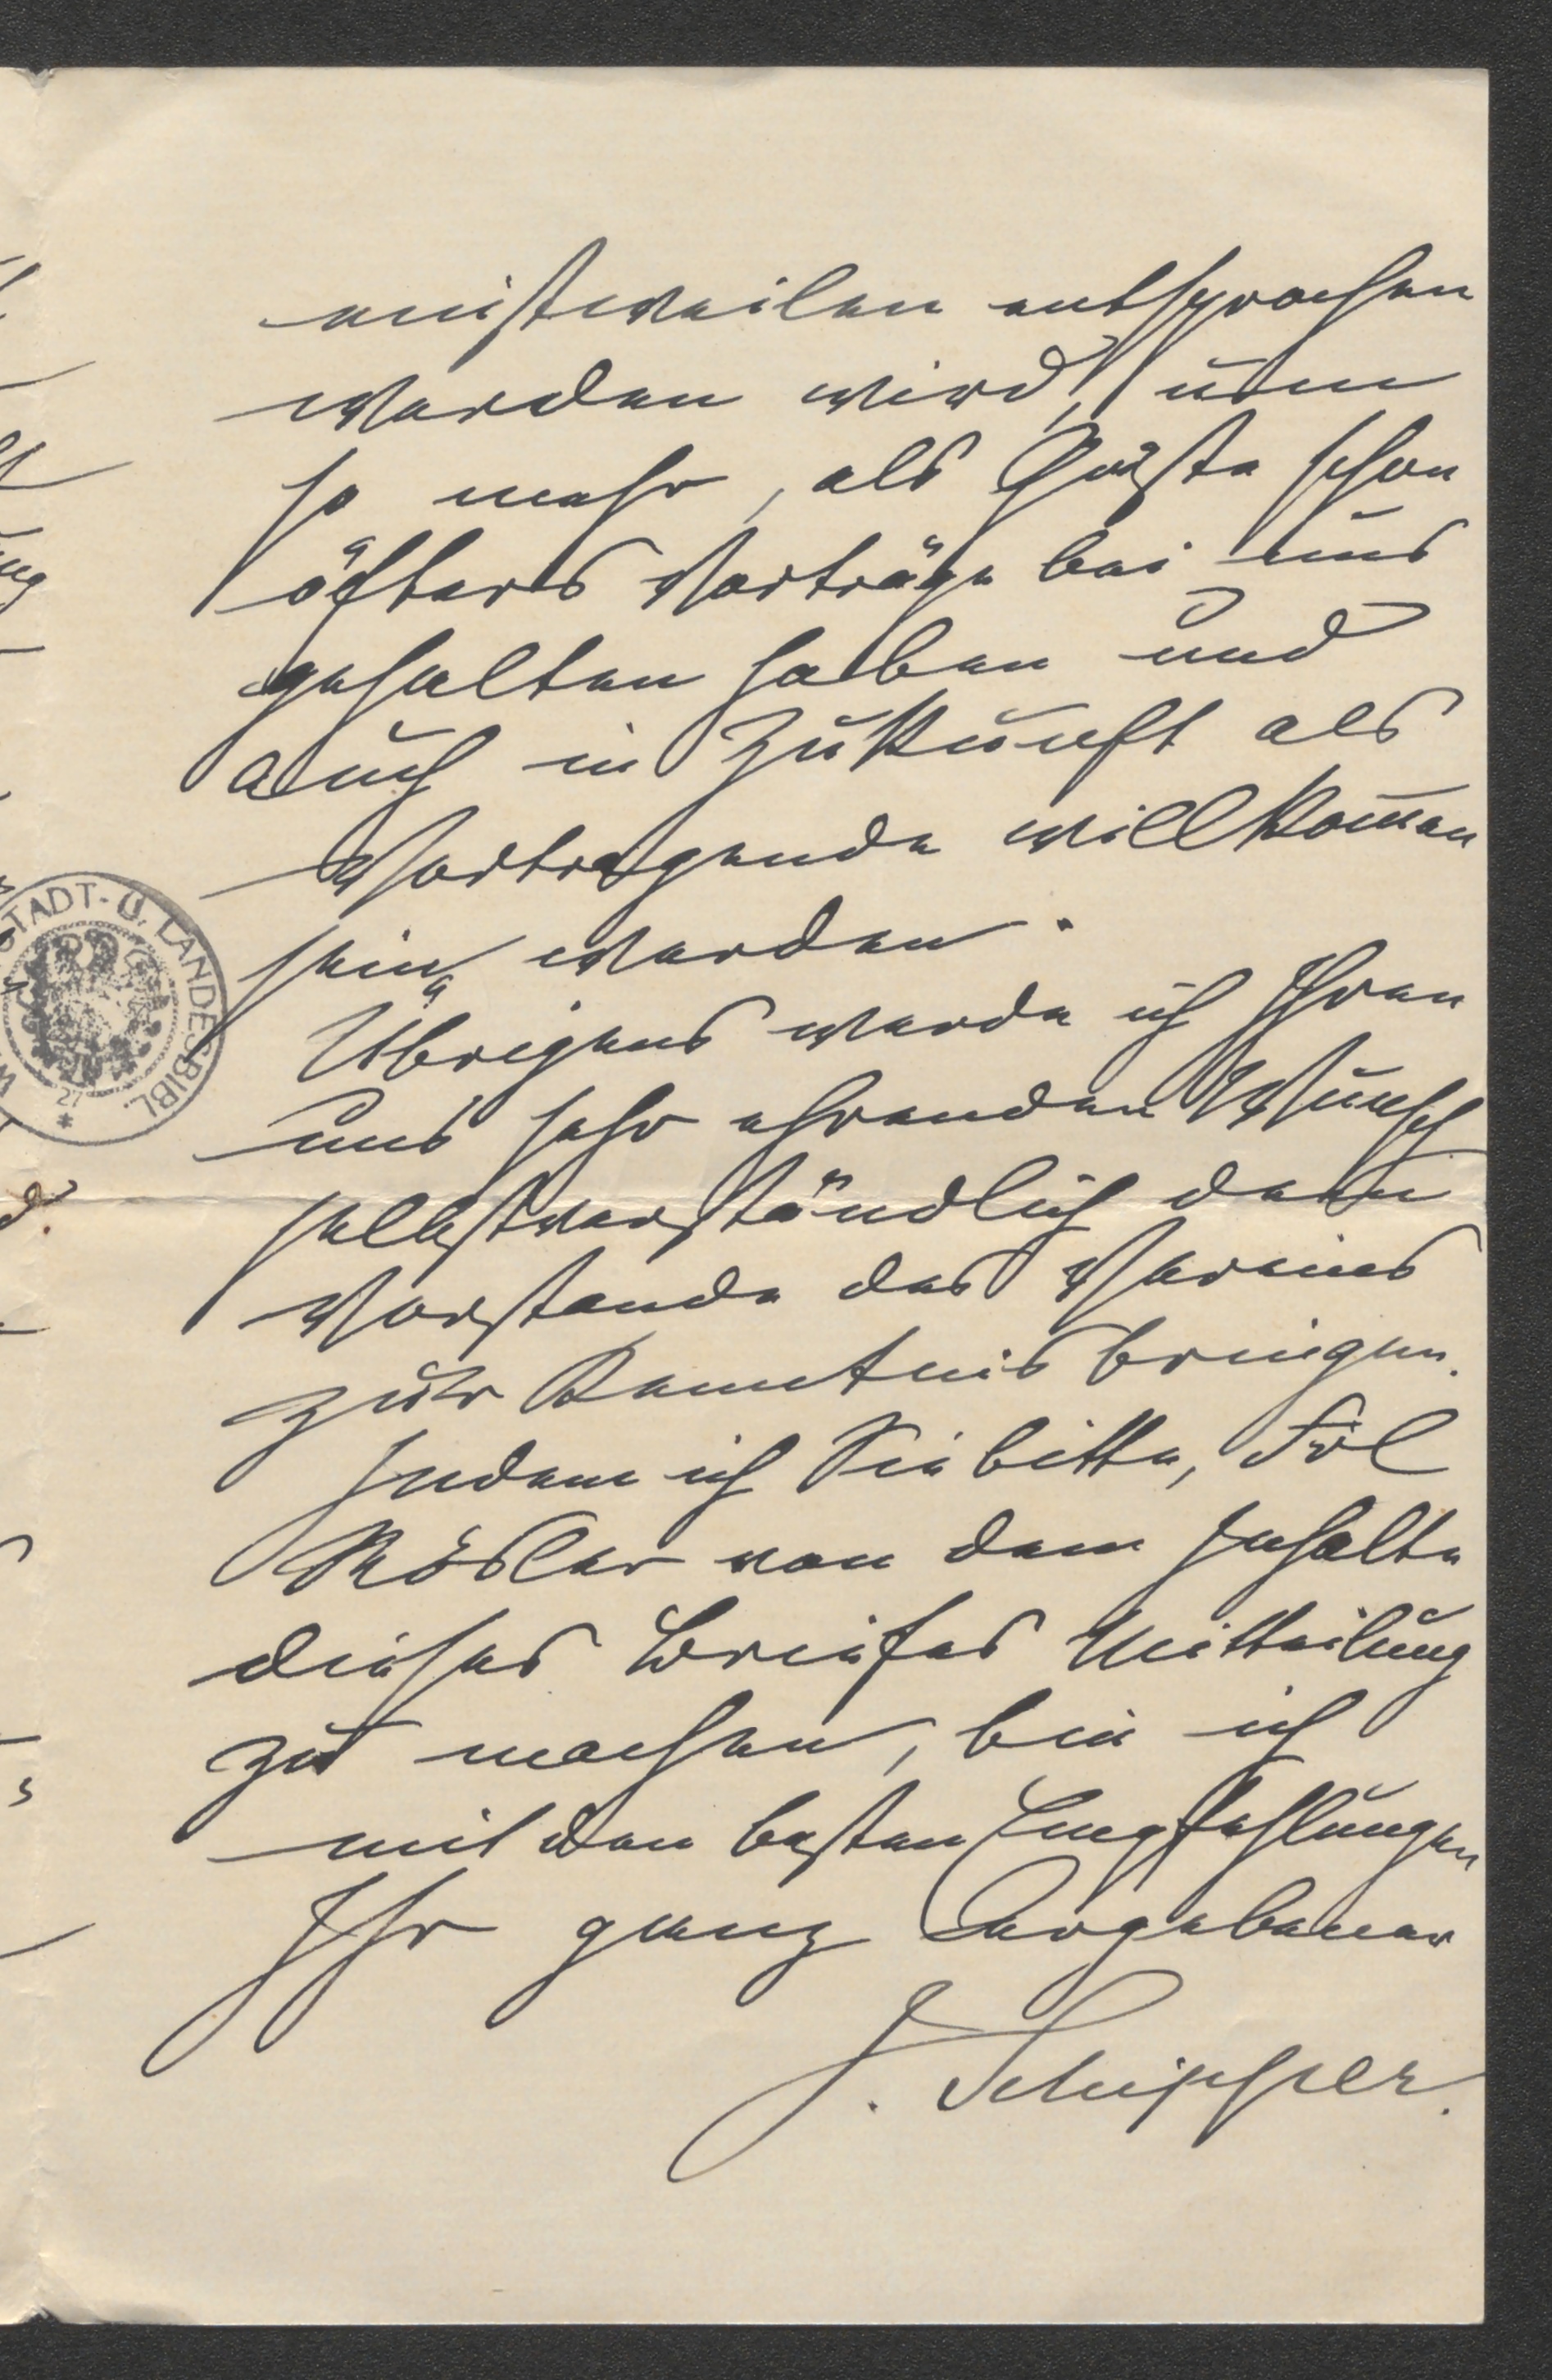 einstweilen entsprochen
werden wird, um
so mehr, als Gäste schon
öfters Vorträge bei uns
gehalten haben und
auch in Zukunft als
Vortragende willkom̅en
sein werden.
Übrigens werde ich Ihren
uns sehr ehrenden Wunsch
selbstverständlich dem
Vorstande des Vereins
zur Kenntnis bringen.
Indem ich Sie bitte, Frl
Rösler von dem Inhalte
dieses Briefes Mitteilung
zu machen, bin ich
mit den besten Empfehlungen
Ihr ganz Ergebener
J. Schipper.
STADT- U. LANDESBIBL.